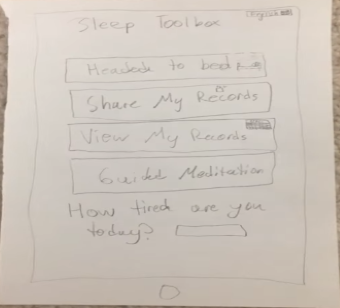 Sleep Toolbox
Headed to bed
Share My Records
View My Records
Guided Meditation
How tired are you
today?